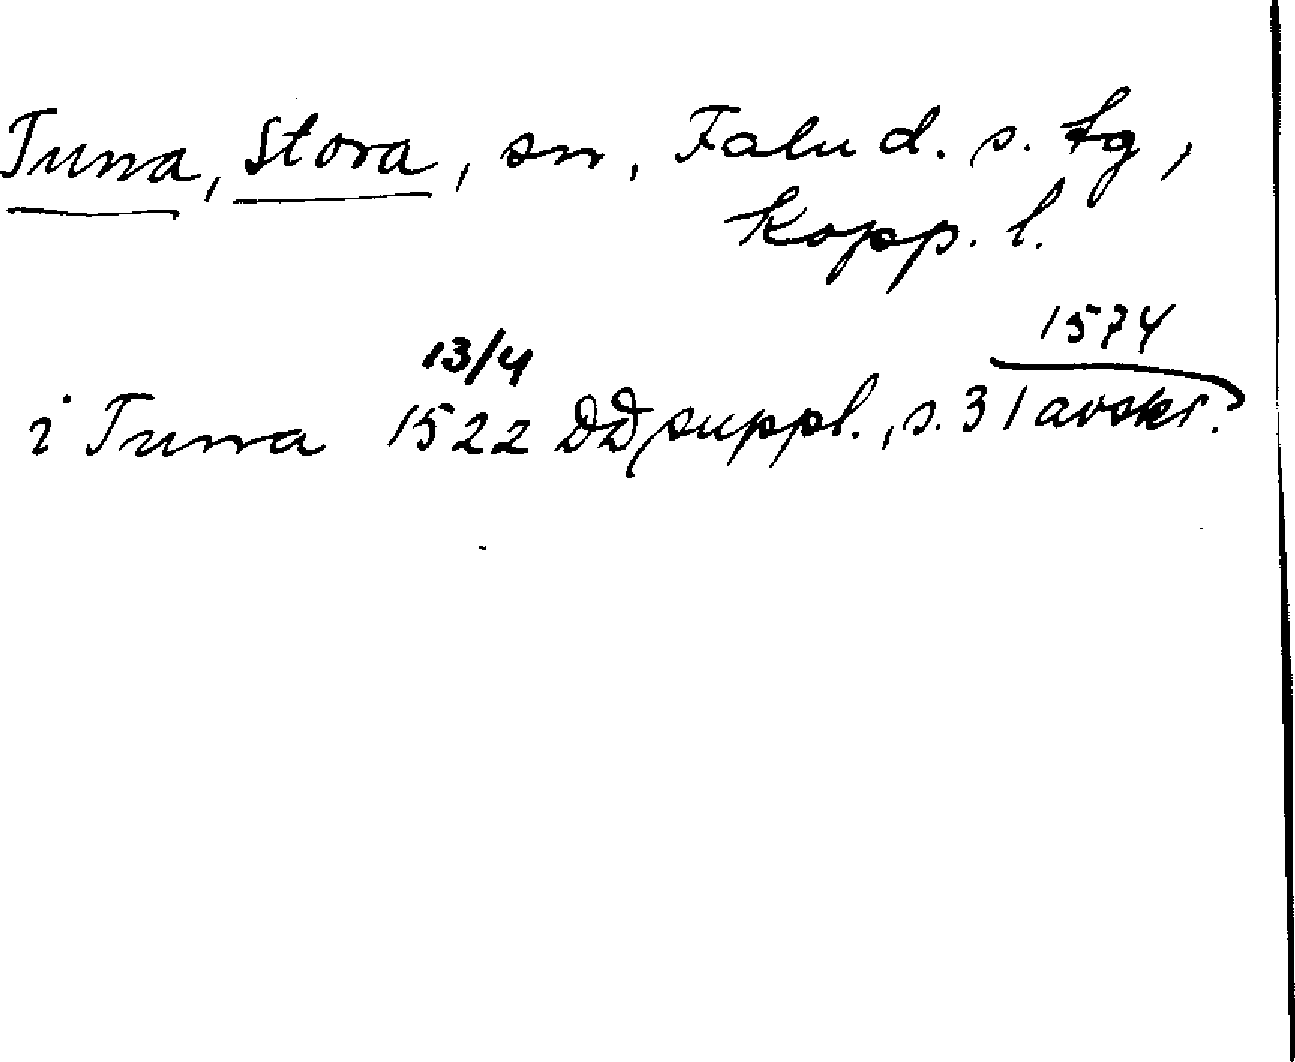 Tuna, Stora, sn, Falu d. s. tg,
Kopp. l.
13/4 1574
i Tuna 1522 DD suppl., s. 31 avskr.